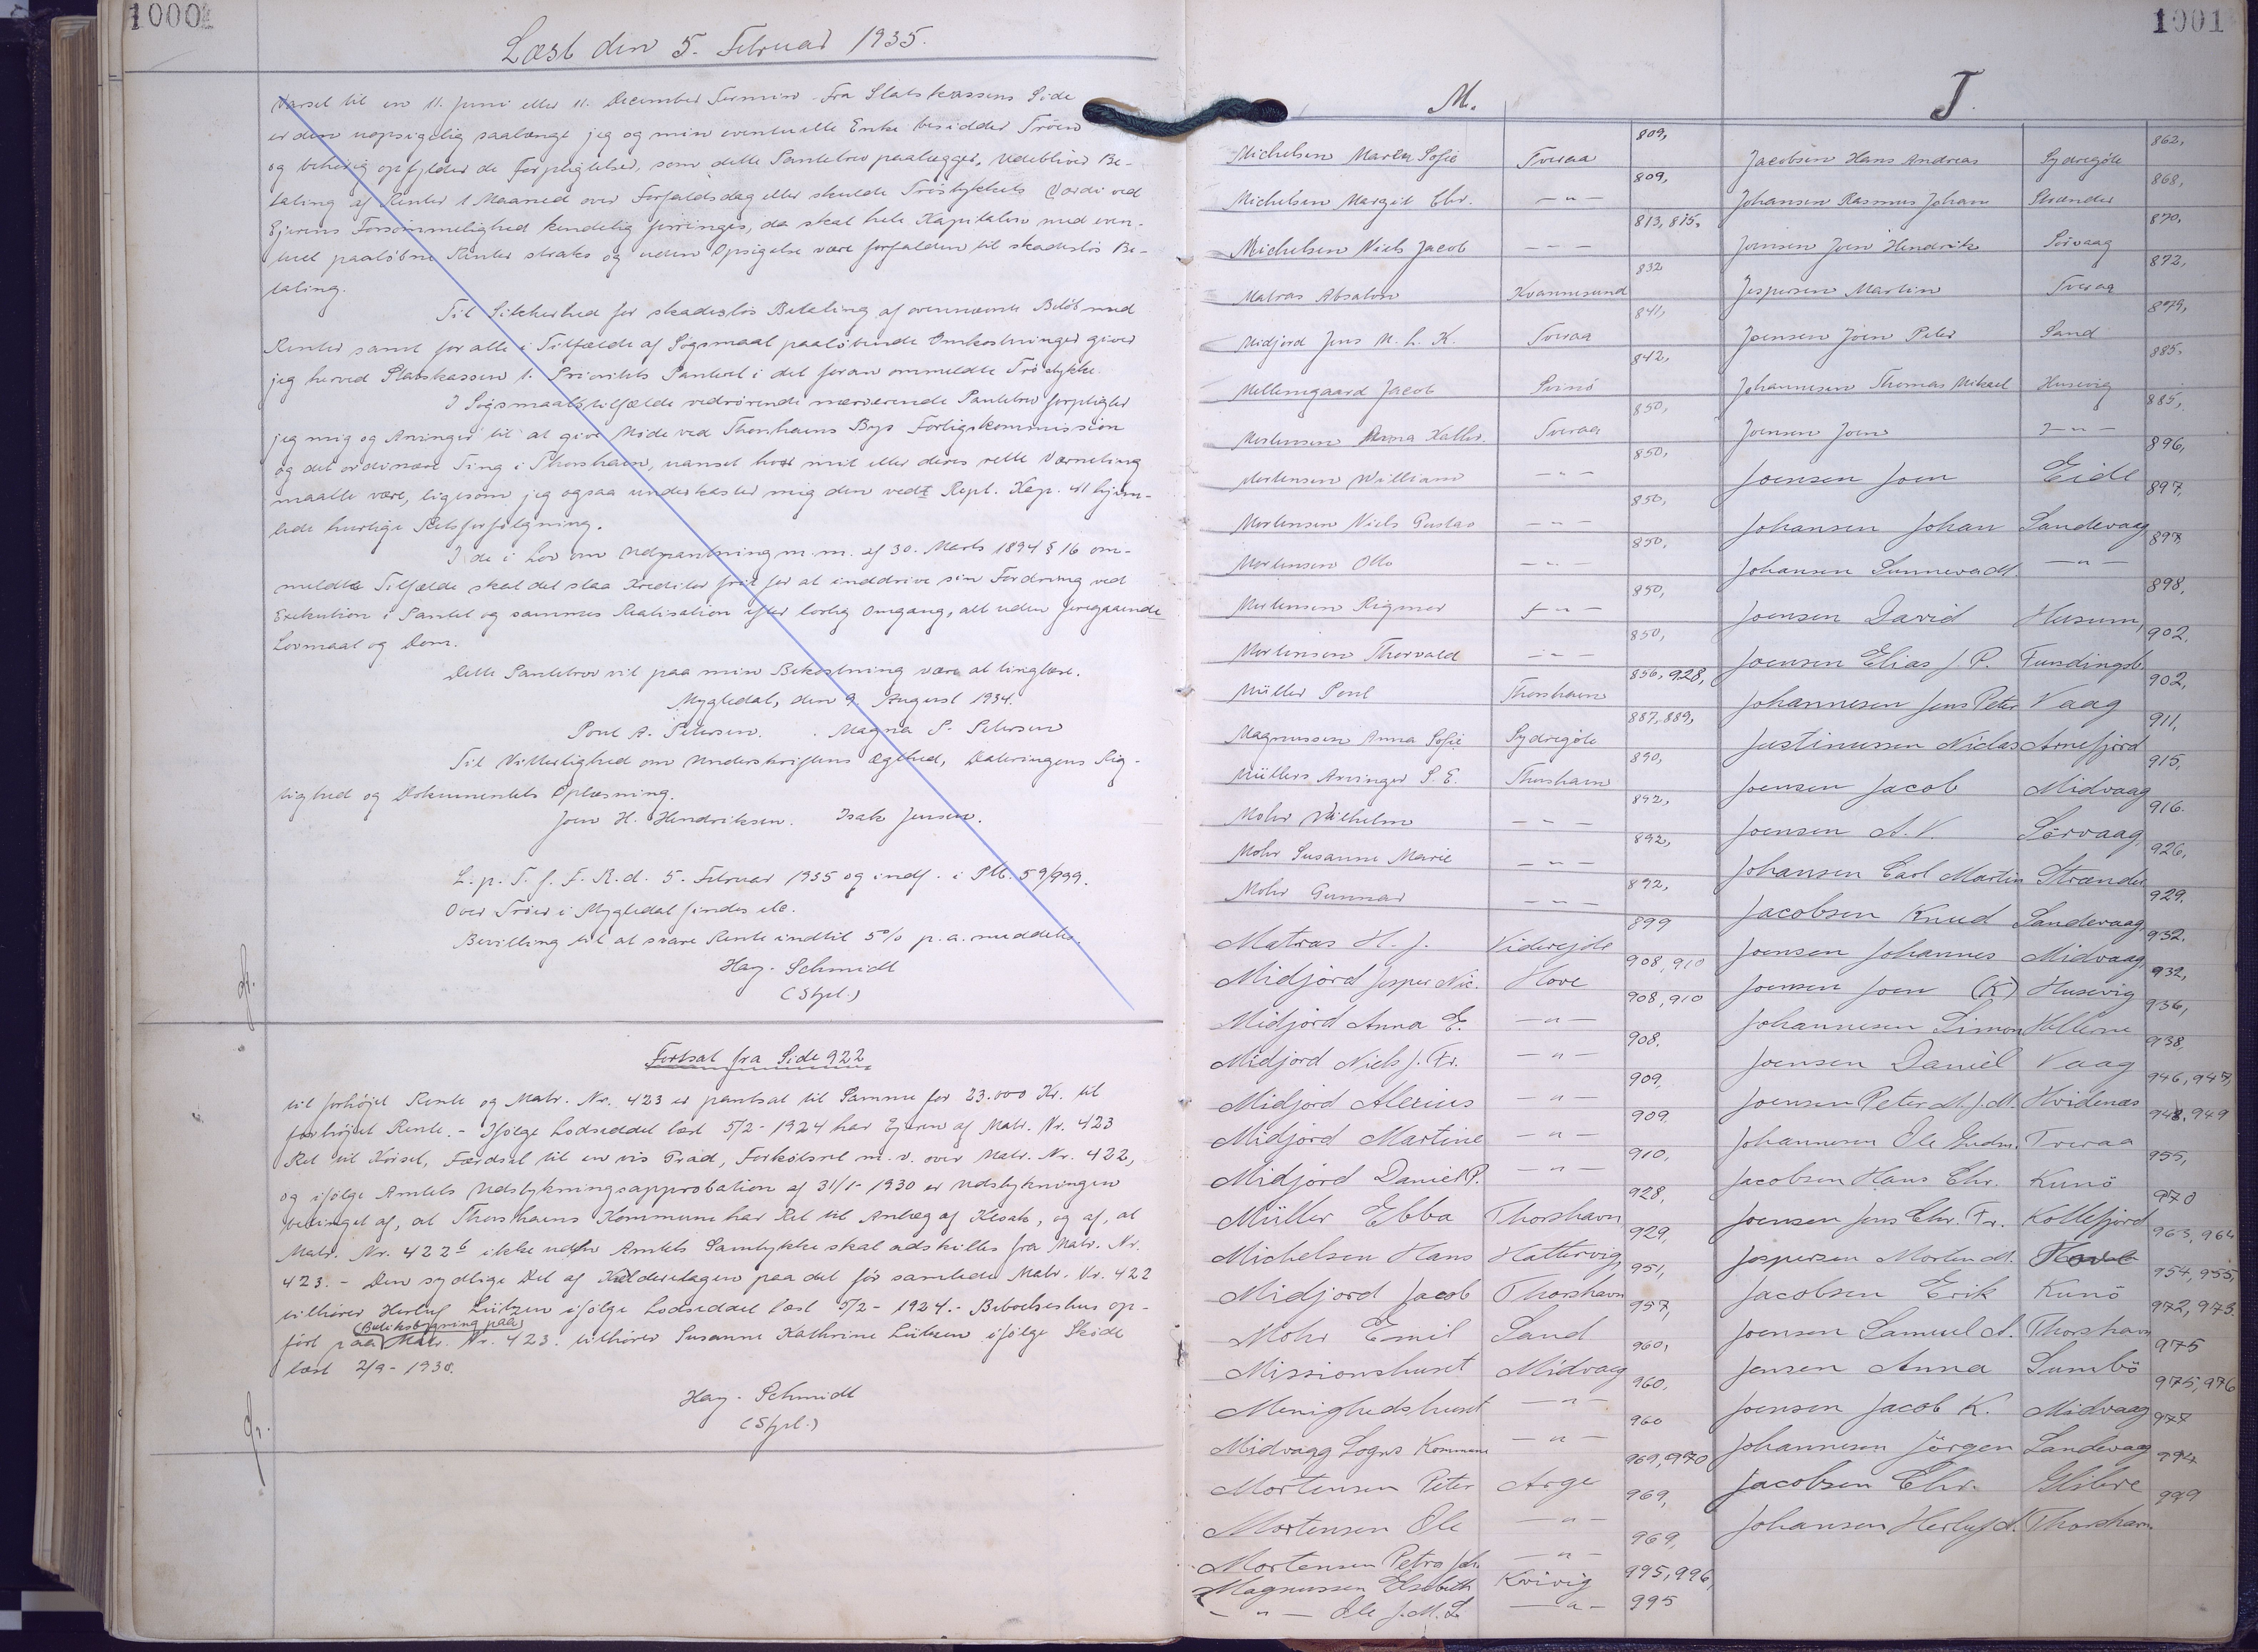 1000
Læst den 5. Februar 1935.
Varsel til en 11. Juni eller 11. December Termin. Fra Statskassens Side
er den uopsigelig saalænge jeg og min eventuelle Enke besidder Tröen
og behørig opfylder de Forpligtelser, som dette Pantebrev paalægger, Udebliver Be-
taling af Renter 1 Maaned over Forfaldsdag eller skulde Tröstykkets Værdi ved
Ejerens Forsömmelighed kendelig forringes, da skal hele Kapitalen med even-
tuel paaløbne Renter straks og uden Opsigelse være forfalden til skadeslös Be-
taling.
Til Sikkerhed for skadeslös Betaling af ovennævnte Beløb med
Renter samt for alle i Tilfælde af Sögsmaal paaløbende Omkostninger giver
jeg herved Statskassen 1. Prioritets Panteret i det foran ommeldte Tröstykke.
I Sögsmaalstilfælde vedrørende nærværende Pantebrev forpligter
jeg mig og Arvinger til at give Møde ved Thorshavns Bys Forligskommission
og det ordinære Ting i Thorshavn, uanset hvor mit eller deres rette Værneting
maatte være, ligesom jeg ogsaa underkaster mig den vedt Repl. Kap. 41 hjem-
lede hurtige Retsforfølgning.
I de i Lov om Udpantning m. m. af 30. Marts 1894 § 16 om-
meldte Tilfælde skal det staa Kreditor frit for at inddrive sin Fordring ved
Exekution i Pantet og sammes Realisation efter lovlig Omgang, alt uden foregaaende
Lovmaal og Dom.
Dette Pantebrev vil paa min Bekostning være at tinglæse.
Mygledal, den 9. August 1934.
Poul A. Petersen. Magna S. Petersen
Til Vitterlighed om Underskriftens Ægthed, Dateringens Rig-
tighed og Dokumentets Oplæsning.
Joen H. Hendriksen. Isak Jensen.
L. p. T. f. F. R. d. 5. Februar 1935 og indf. i Ptb. 59/999.
Over Tröen i Mygledal findes ete.
Bevilling til at svare Rente indtil 5% p. a. meddeles.
Hay-Schmidt
(Stpl.)
Fortsat fra Side 922
til forhøjet Rente og Matr. Nr. 423 er pantsat til Samme for 23.000 Kr. til
forhøjet Rente. - Ifølge Lodseddel læst 5/2-1924 har Ejeren af Matr. Nr. 423
Ret til Kørsel, Færdsel til en vis Grad, Forkøbsret m. v. over Matr. Nr. 422,
og ifølge Amtets Udstykningsapprobation af 31/1-1930 er Udstykningen
betinget af, at Thorshavns Kommune har Ret til Anlæg af Kloak, og af, at
Matr. Nr. 422b ikke uden Amtets Samtykke skal adskilles fra Matr. Nr.
423. - Den sydlige Del af Kælderetagen paa det før samlede Matr. Nr. 422
tilhører Herluf Lützen ifølge Lodseddel læst 5/2-1924. - Beboelseshus op-
(Butiksbygning paa)
ført paa Matr. Nr. 423. tilhører Susanne Kathrine Lützen ifølge Skøde
læst 2/9-1930.
Hay-Schmidt
(Stpl.)
1001
M.
Michelsen Maren Sofie Tveraa 809,
Michelsen Margit Chr. -"- 809,
Michelsen Niels Jacob --- 813, 815,
Matras Absalon Kvannesund 832
Midjord Jens M. L. K. Tveraa 841,
Mellemgaard Jacob Svinö 842,
Mortensen Anna Kathr. Tveraa 850,
Mortensen William -"- 850,
Mortensen Niels Gustav -"- 850,
Mortensen Otto -"- 850,
Mortensen Rigmor -"- 850,
Mortensen Thorvald -"- 850,
Müller Poul Thorshavn 856, 928,
Magnussen Anna Sofie Sydregöte 887, 889,
Müllers Arvinger S. E. Thorshavn 890,
Mohr Vilhelm -"- 892,
Mohr Susanne Marie -"- 892,
Mohr Gunnar -"- 892,
Matras H. J. Viderejde 899
Midjord Jesper Nic. Hove 908, 910
Midjord Anna E. -"- 908, 910
Midjord Niels J. Fr. -"- 908.
Midjord Alexius -"- 909,
Midjord Martine -"- 909
Midjord Daniel P. -"- 910,
Müller Ebba Thorshavn 928,
Michelsen Hans Hattervig, 929,
Midjord Jacob Thorshavn 951,
Mohr Emil Sand 957,
Missionshuset Midvaag 960,
Menighedshuset -"- 960,
Midvaag Sogns Kommune -"- 960
Mortensen Peter Arge 969, 970
Mortensen Ole -"- 969,
Mortensen Petra Joh. -"- 969,
Magnussen Elsebeth Kvivig 995, 996,
-"- Ole J. M. L. -"- 995
J.
Jacobsen Hans Andreas Sydregöte 862,
Johansen Rasmus Johan Strander 868,
Joensen Joen Hendrik Sörvaag 870,
Jespersen Martin Tveraa 872,
Joensen Joen Peter Sand 879,
Johannesen Thomas Mikael Husevig 885.
Joensen Joen -"- 885,
Joensen Joen Eide 896,
Johansen Johan Sandevaag 897,
Johansen Sunneva M. -"- 897
Joensen David Husum, 898,
Joensen Elias J. P. Fundingsb. 902.
Johannesen Jens Peter Vaag 902,
Justinussen Niclas Arnefjord 911,
Joensen Jacob Midvaag 915,
Joensen A. V. Sörvaag, 916.
Johansen Carl Martin Strander 926,
Jacobsen Knud Sandevaag, 929.
Joensen Johannes Midvaag, 932.
Joensen Joen (K) Husevig 932,
Johannesen Simon Hellerne 936,
Joensen Daniel Vaag 938,
Joensen Peter M. J. M. Hvidenæs 946, 947,
Johannesen Ole Gudm. Tveraa 948, 949
Jacobsen Hans Chr. Kunö 955,
Joensen Jens Chr. Fr. Kollefjord 970
Jespersen Morten M. Hove 963, 964
Jacobsen Erik Kunö 954, 955,
Joensen Samuel A. Thorshavn 972, 973.
Jensen Anna Sumbö 975
Joensen Jacob K. Midvaag 975, 976
Johannesen Jörgen Sandevaag 977
Jacobsen Chr. Glibre 994
Johansen Herluf A. Thorshavn. 999